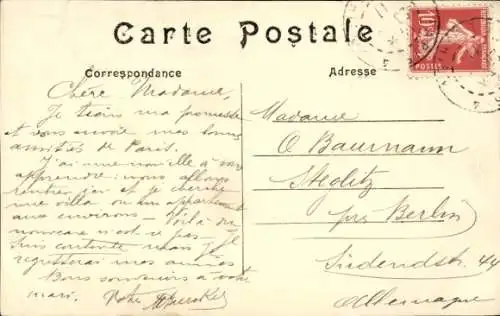 Carte Postale
Correspondance
Adresse
10c
POSTES
Chère Madame,
Je tiens ma promesse
et vous envoie mes bonnes
amitiés de Paris.
J'ai une nouvelle à vous
apprendre: nous allons
et je cherche
une villa ou un appartement
aux environs — Voilà du
nouveau n'est-ce pas. Je
suis contente mais je
regretterai mes amies
Bons souvenirs à votre
mari. Votre
Madame
O Baumann
Steglitz
per Berlin
Südendstr. 44
Allemagne